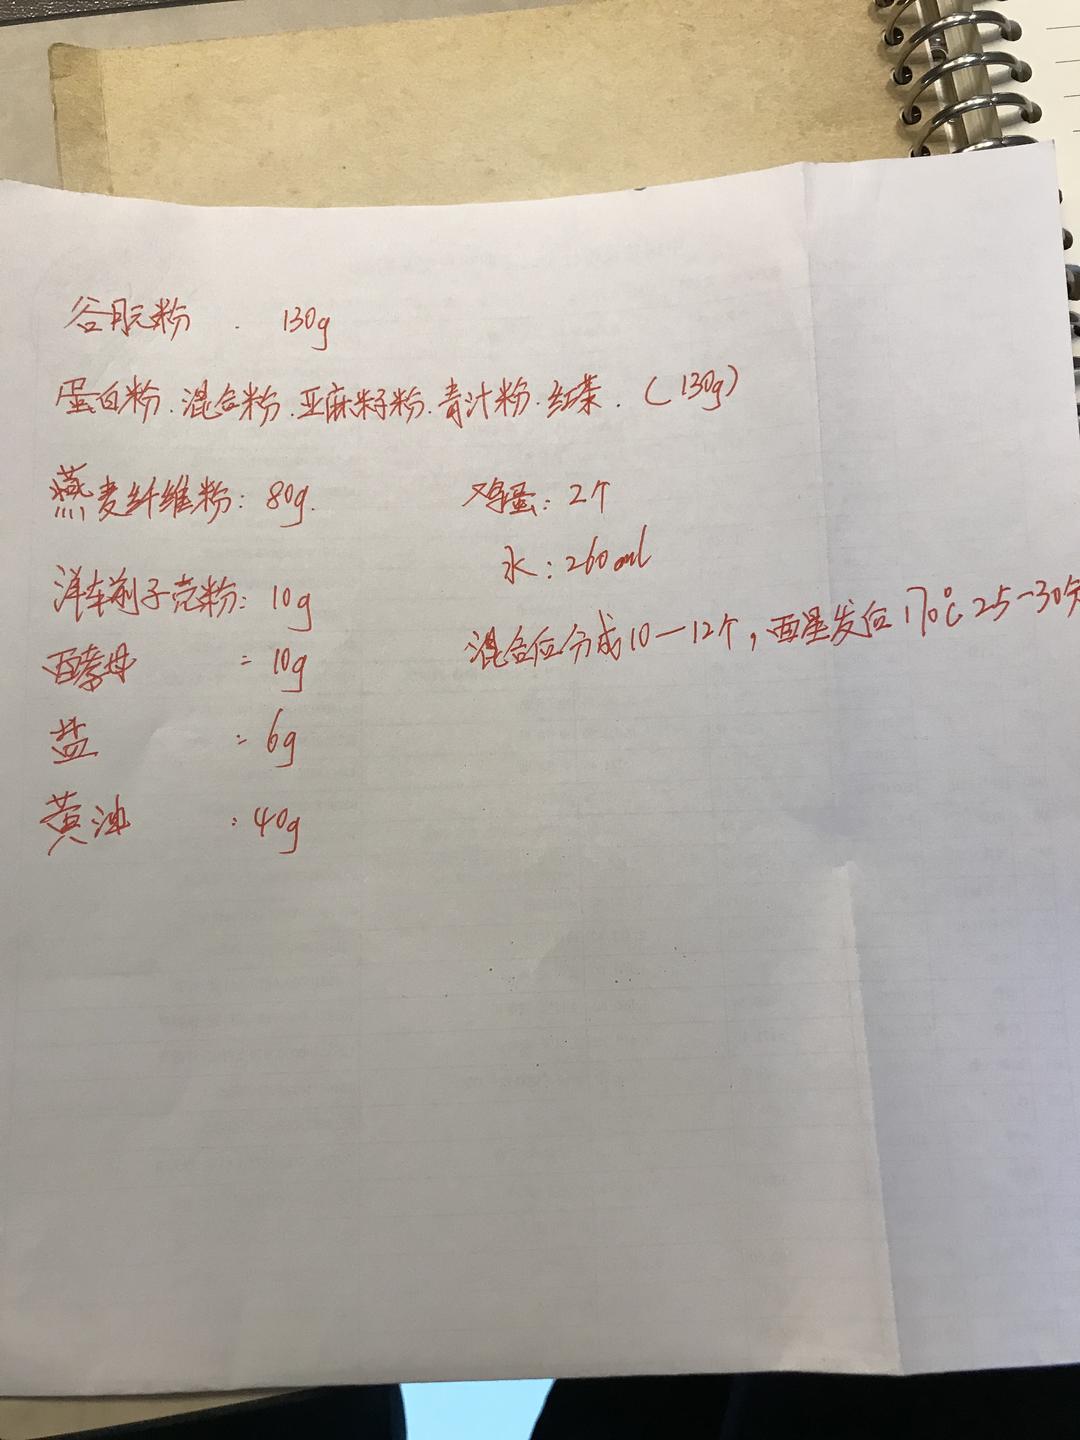 谷朊粉 . 130g
蛋白粉.混合粉.亚麻籽粉.青汁粉.红茶.(130g)
燕麦纤维粉: 80g.
洋车前子壳粉: 10g
酵母 : 10g
盐 : 6g
黄油 : 40g
鸡蛋: 2个
水: 260ml
混合后分成10-12个,面星发后170℃ 25-30分